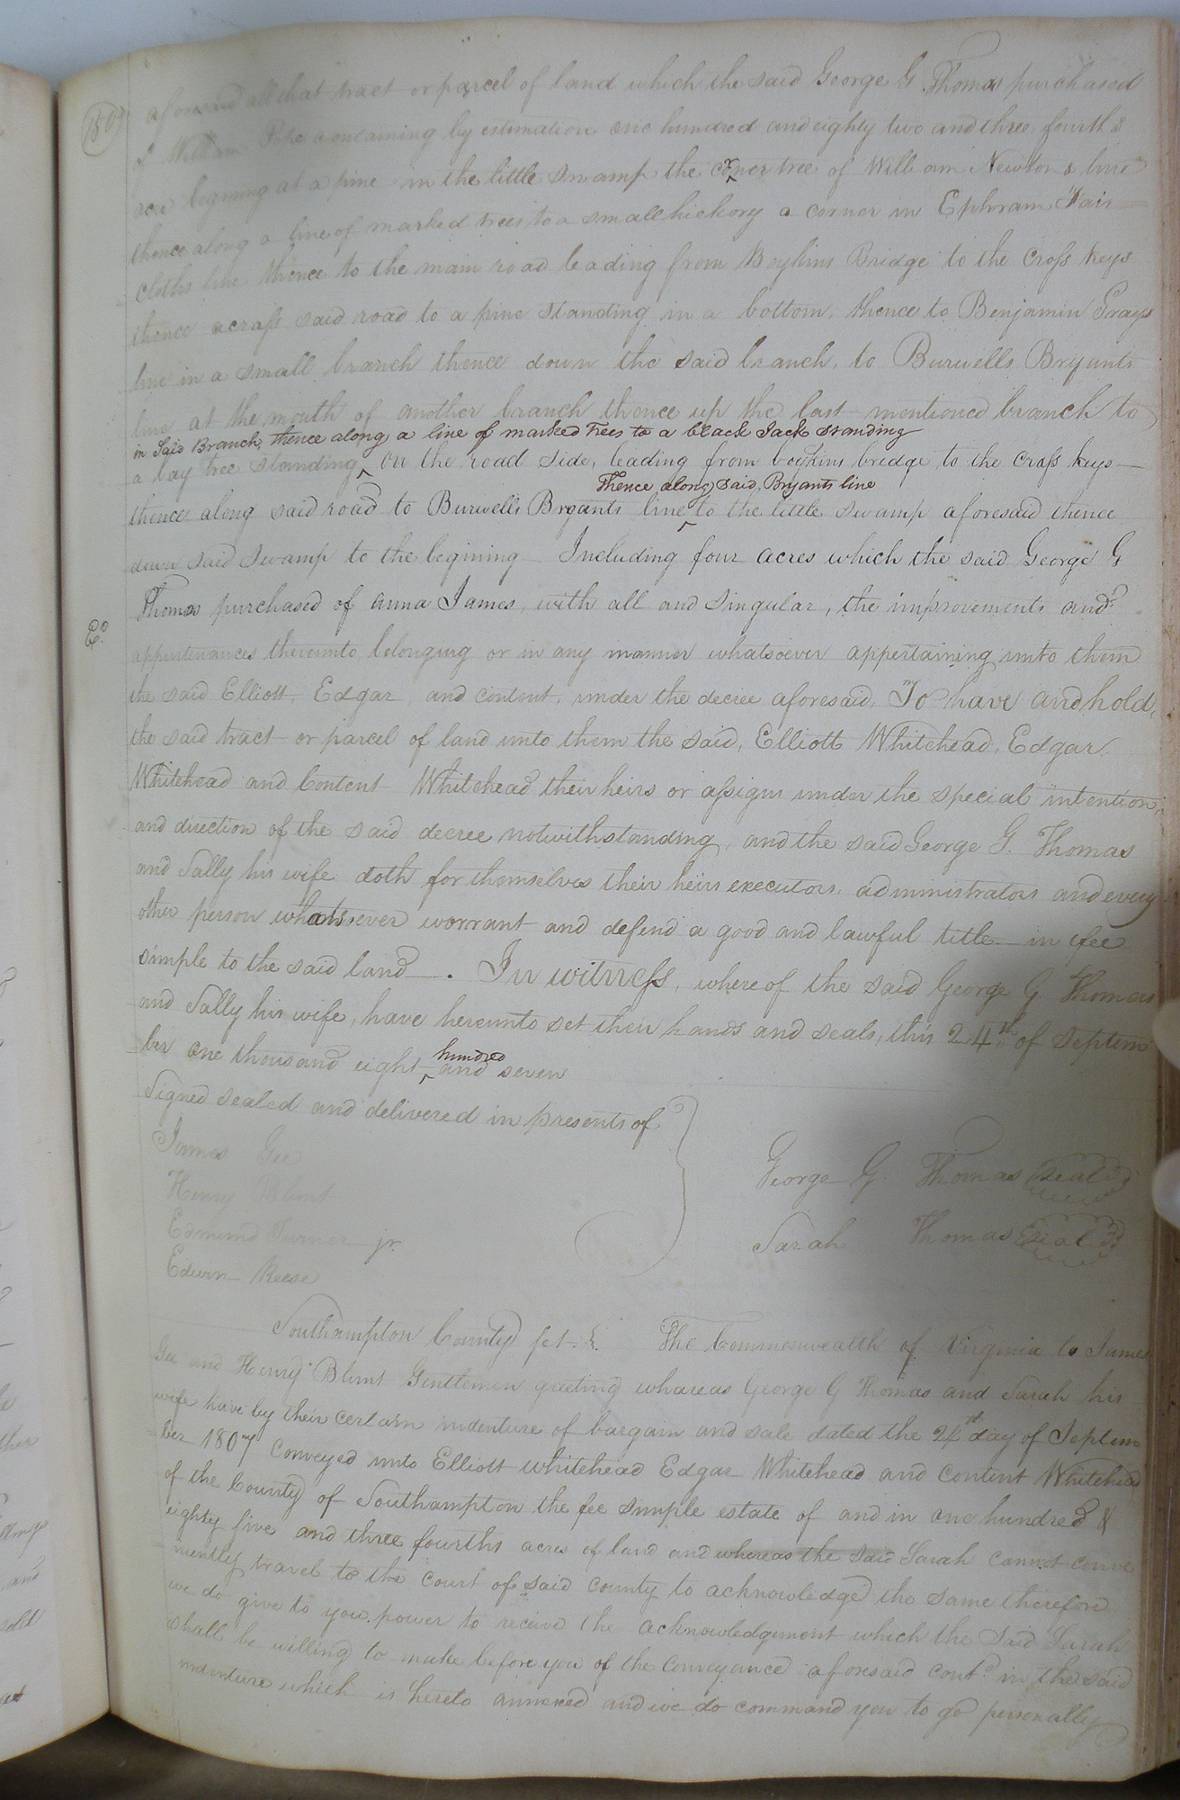 aforesaid all that tract or parcel of land which the said George G. Thomas purchased
of William containing by estimation one hundred and eighty two and three fourths
acres begining at a pine in the little swamp the corner tree of William Newton's line
thence along a line of marked trees to a small hickory a corner in Ephram Fair
cloths line thence to the main road leading from Boykins Bridge to the Cross Keys
thence across said road to a pine standing in a bottom, thence to Benjamin Grays
line in a small branch thence down the said branch, to Burwells Bryants
line at the mouth of another branch thence up the last mentioned branch to
in Said Branch, thence along a line of marked Trees to a black Jack standing
a bay tree standing ^ on the road side, leading from boykins bredge to the Cross keys
Thence along said, Bryants line
thence along said road to Burwells Bryants line ^ to the little swamp aforesaid thence
down said swamp to the begining Including four acres which the said George G
Thomas purchased of anna James, with all and singular, the improvements and
&c.
appurtenances thereunto belonging or in any manner whatsoever appertaining unto them
the said Elliott, Edgar, and content, under the decree aforesaid, To have and hold,
the said tract or parcel of land unto them the said, Elliott Whitehead, Edgar
Whitehead and Content Whitehead their heirs or assigns under the special intention,
and direction of the said decree notwithstanding, and the said George G. Thomas
and Sally his wife doth for themselves their heirs executors, administrators and every
other person whatsoever warrant and defend a good and lawful title in fee
simple to the said land. In witness, whereof the said George G Thomas
and Sally his wife, have hereunto set their hands and seals, this 24th of Septem
hundred
ber one thousand eight ^ and seven
Signed sealed and delivered in presents of
James Gee
Henry Blunt
Edmund Turner jr.
Edwin Reese
George G. Thomas Seal
Sarah Thomas Seal
Southampton County sct. &. The Commonwealth of Virginia to James
Gee and Henry Blunt Gentlemen greeting whareas George G Thomas and Sarah his
wife have by their certain indenture of bargain and sale dated the 24st day of Septem
ber 1807 Conveyed unto Elliott whitehead Edgar Whitehead and Content Whitehead
of the County of Southampton the fee simple estate of and in one hundred &
eighty five and three fourths acres of land and whereas the said Sarah cannot conve
niently travel to the court of said county to acknowledge the same therefore
we do give to you power to receive the acknowledgement which the said Sarah
shall be willing to make before you of the Conveyance aforesaid contd. in the said
indenture which is hereto annexed and we do command you to go personally